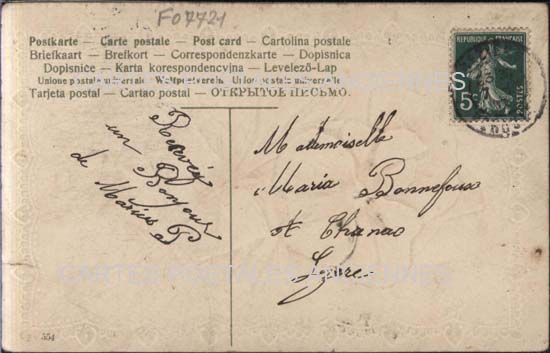 F07721
Postkarte — Carte postale — Post card — Cartolina postale
Briefkaart — Brefkort — Correspondenzkarte — Dopisnica
Dopisnice — Karta korespondencyjna — Levelező-Lap
Unione postale universale — Weltpostverein — Union postale universelle
Tarjeta postal — Cartao postal — ОТКРЫТОЕ ПИСЬМО.
REPUBLIQUE FRANÇAISE
5c
POSTES
un Bonjour
de Marius P
Mademoiselle
Maria Bonnefoux
à Chanac
Lozère
CARTES POSTALES ANCIENNES
CARTES POSTALES ANCIENNES
554